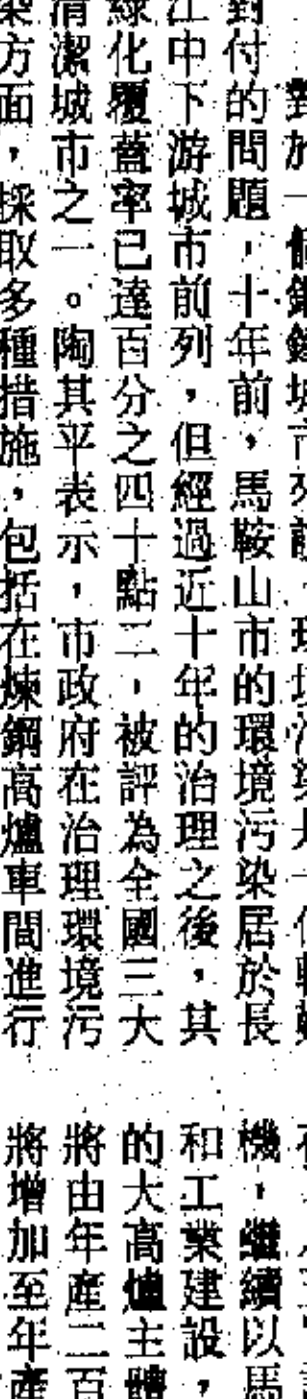 對於一個鋼鐵城市來說，環境污染是一個
對付的問題，十年前，馬鞍山市的環境污染居於長
江中下游城市前列，但經過近十年的治理之後，其
綠化覆蓋率已達百分之四十點二，被評為全國三大
清潔城市之一。陶其平表示，市政府在治理環境污
染方面，採取多種措施，包括在煉鋼高爐車間進行
機，繼續以馬
和工業建設，
的大高爐主體
將由年產二百
將增加至年產